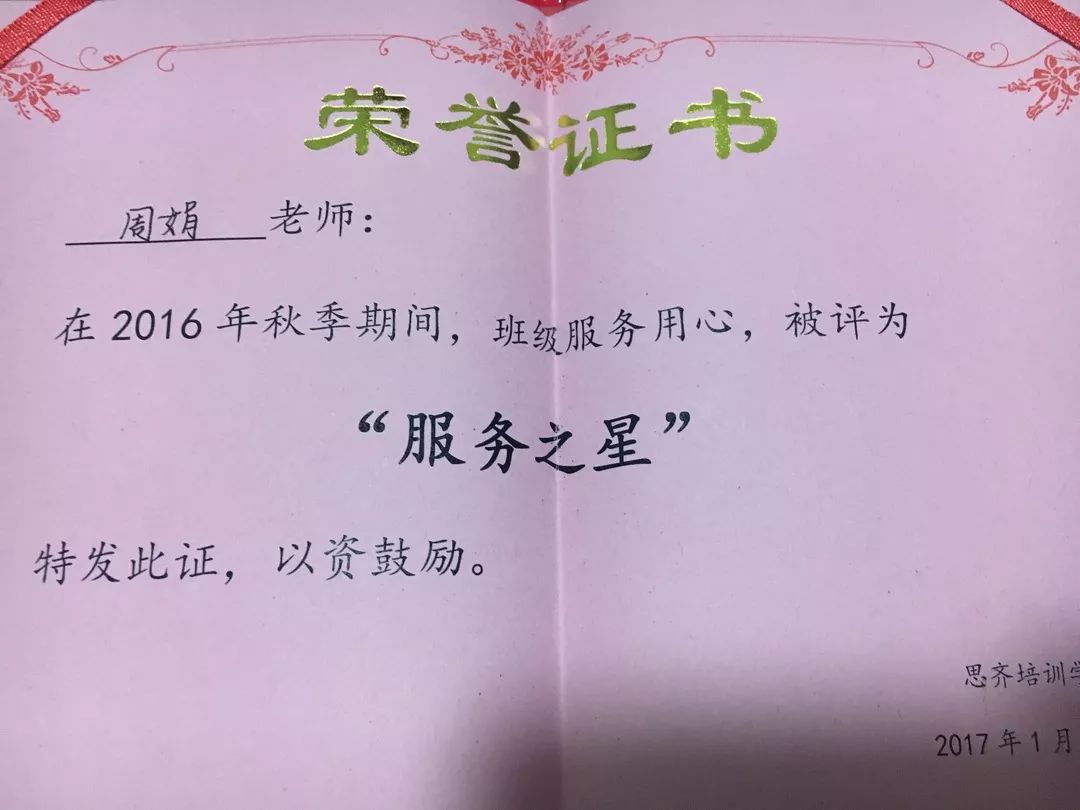 荣誉证书
周娟 老师：
在 2016 年秋季期间，班级服务用心，被评为
“服务之星”
特发此证，以资鼓励。
思齐培训学
2017 年 1 月